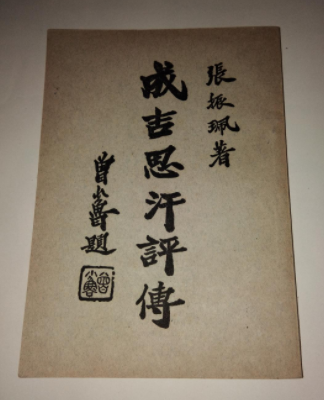 張振珮著
成吉思汗評傳
曾小魯題